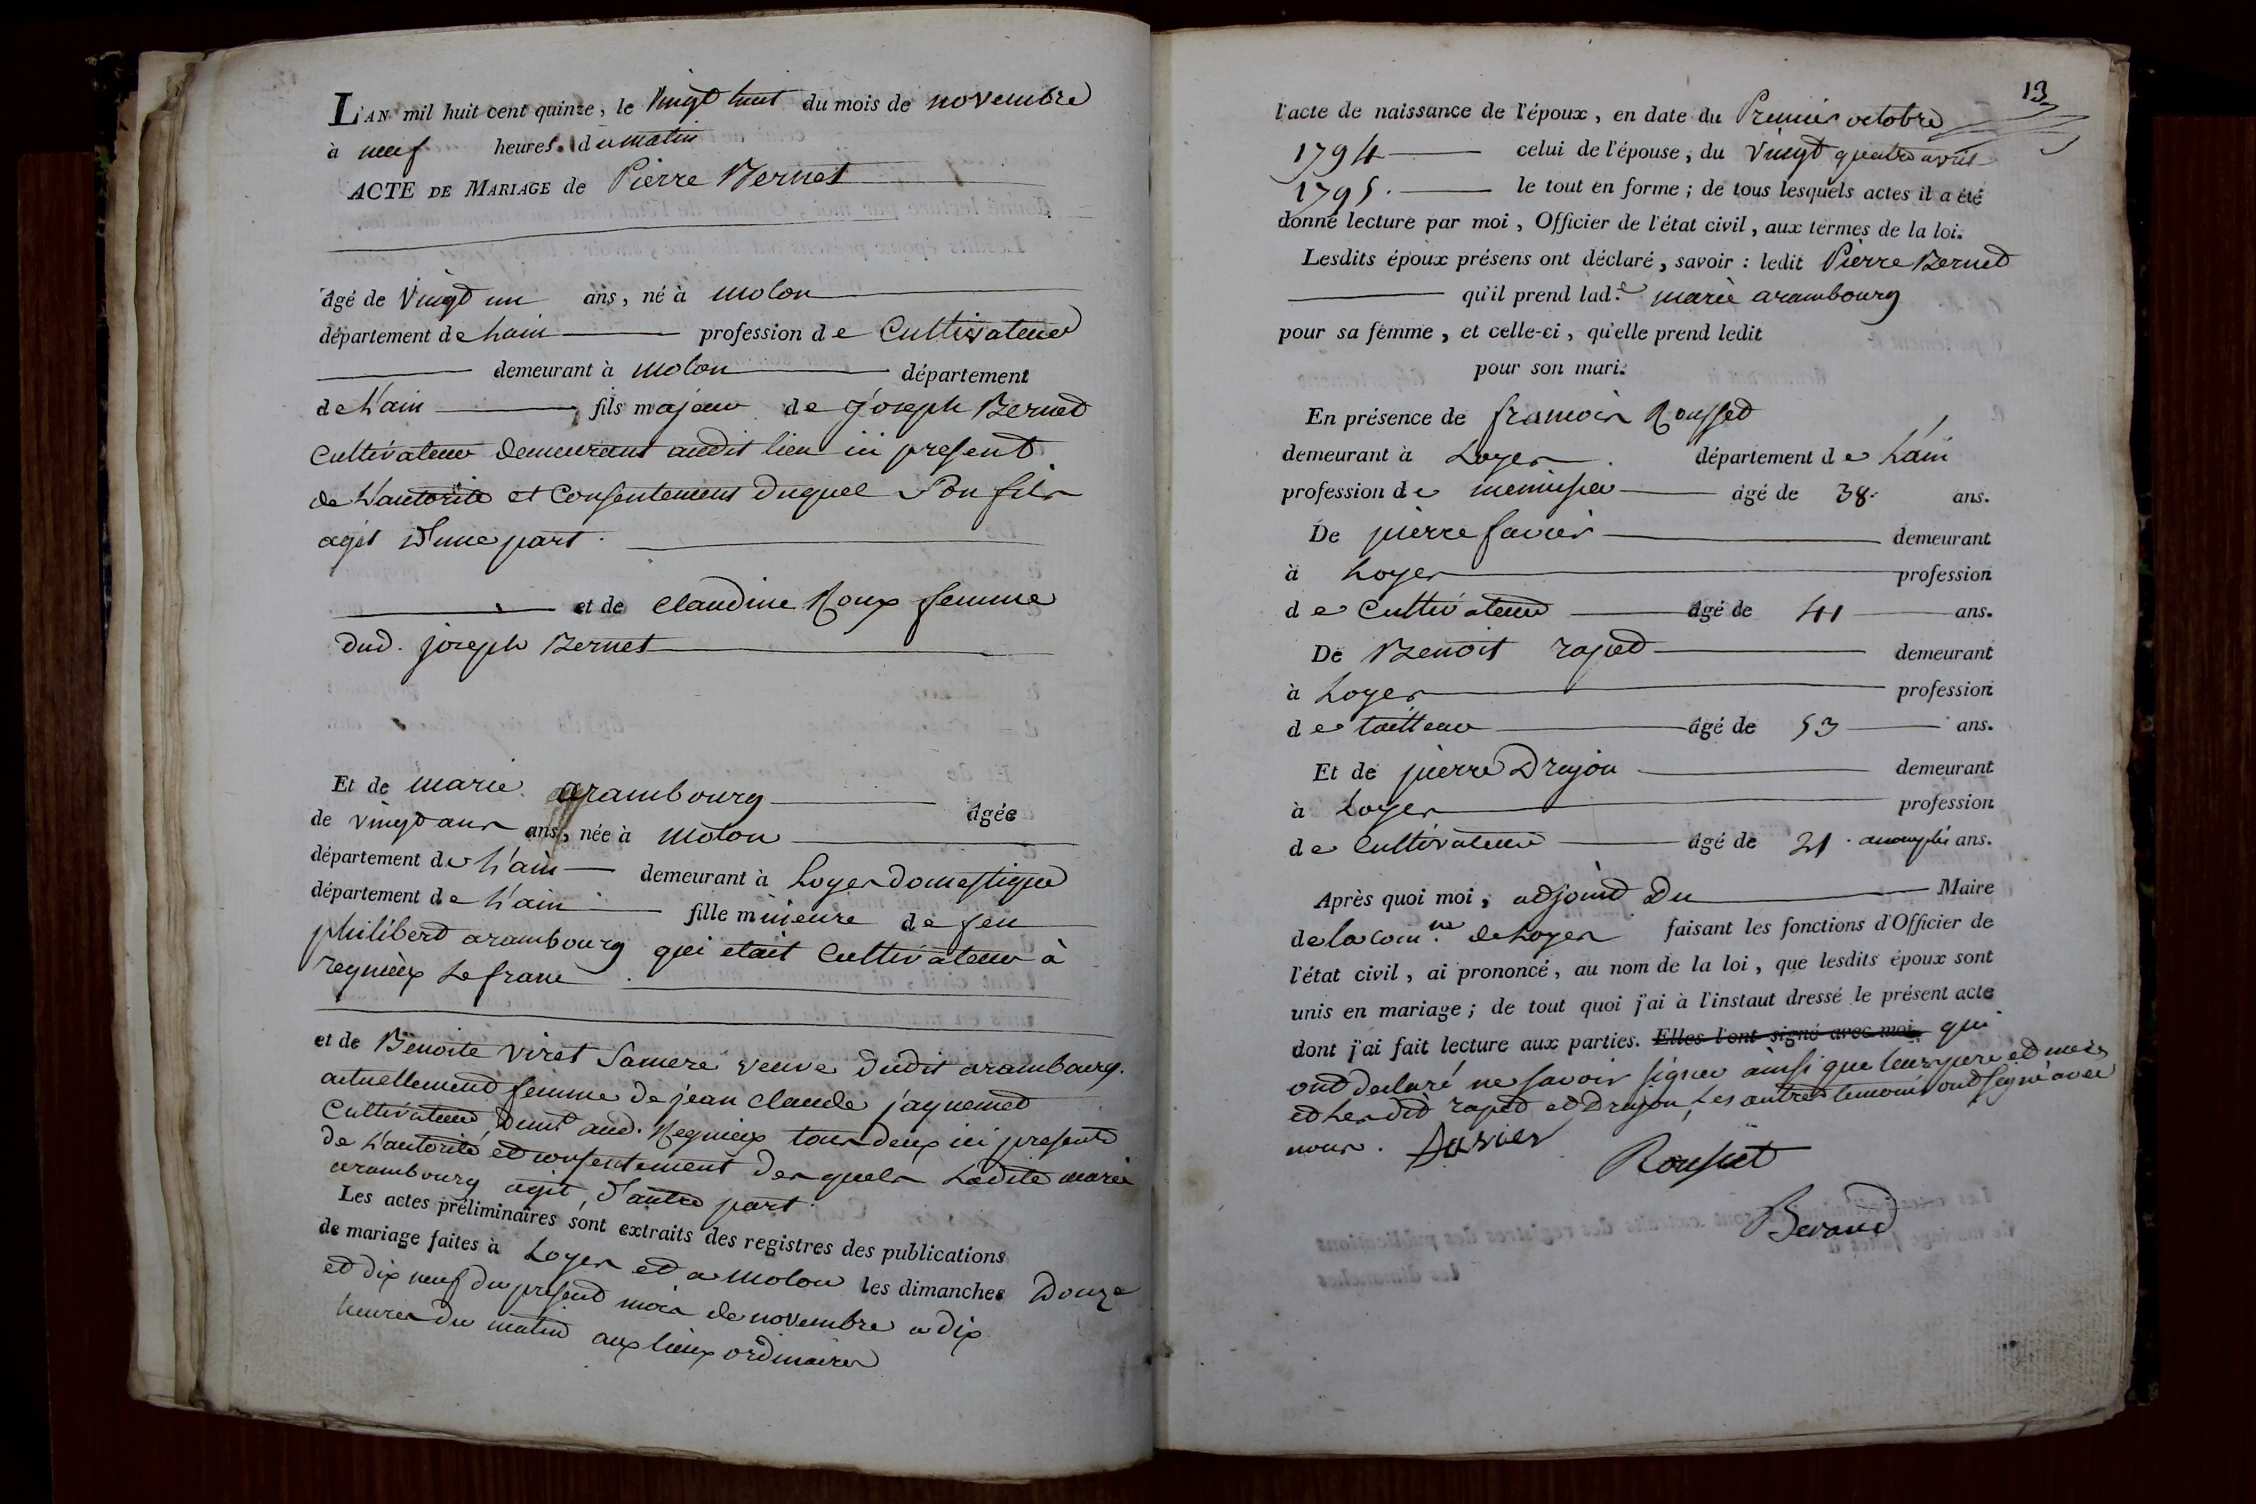 L'AN mil huit cent quinze, le Vingt huit du mois de novembre
à neuf heures. du matin
ACTE DE MARIAGE de Pierre Bernet
âgé de Vingt un ans, né à molon
département de Lain profession de Cultivateur
demeurant à molon département
de L'ain fils majeur de joseph Bernet
Cultivateur demeurant audit lieu ici present
de L'autorité et Consentement duquel Son fils
agit d'une part.
et de Claudine Roux femme
dud. joseph Bernet
Et de marie arambourg âgée
de vingt ans ans, née à molon
département de L'ain demeurant à Loyes domestique
département de L'ain fille mineure de feu
philibert arambourg qui etait Cultivateur à
regnieux Le franc
et de Benoite viret Samere veuve dudit arambourg.
actuellement femme de jean Claude jaquemet
Cultivateur, dmt aud. Regnieux tous deux ici presents
de L'autorité et consentement des quels Ladite marie
arambourg agit, d'autre part.
Les actes préliminaires sont extraits des registres des publications
de mariage faites à Loyes et a molon les dimanches Douze
et dix neuf du présent mois de novembre a dix
heures du matin aux lieux ordinaires
13
l'acte de naissance de l'époux, en date du Premier octobre
1794 celui de l'épouse, du Vingt quatre avril
1795. le tout en forme; de tous lesquels actes il a été
donné lecture par moi, Officier de l'état civil, aux termes de la loi.
Lesdits époux présens ont déclaré, savoir: ledit Pierre Bernet
qu'il prend lad.e marie arambourg
pour sa femme, et celle-ci, qu'elle prend ledit
pour son mari.
En présence de francois Rousset
demeurant à Loyes département de L'ain
profession de menuisier âgé de 38. ans.
De pierre favier demeurant
à Loyes profession
de Cultivateur âgé de 41 ans.
De Benoit raped demeurant
à Loyes profession
de tailleur âgé de 53 ans.
Et de pierre Drujon demeurant
à Loyes profession
de Cultivateur âgé de 21. accomplis ans.
Après quoi moi, adjoint Du Maire
de la com.ne de Loyes faisant les fonctions d'Officier de
l'état civil, ai prononcé, au nom de la loi, que lesdits époux sont
unis en mariage; de tout quoi j'ai à l'instant dressé le présent acte
dont j'ai fait lecture aux parties. Elles l'ont signé avec moi, qui
ont declaré ne savoir signer ainsi que leurs pere et mere
et Lesdit raped et Drujon, Les autres temoins ont signé avec
nous. Favier
Rousset
Beraud